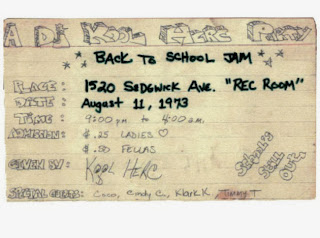 A DJ KOOL HERC PARTY
BACK TO SCHOOL JAM
PLACE: 1520 SEDGWICK AVE. "REC ROOM"
DATE: August 11, 1973
TIME: 9:00 pm. to 4:00 am.
ADMISSION: $.25 LADIES ♡
$.50 FELLAS
GIVEN BY: KOOL HERC
SCHOOL'S STILL OUT!
SPECIAL GUESTS: Coco, Cindy C., Klark K, TIMMY T